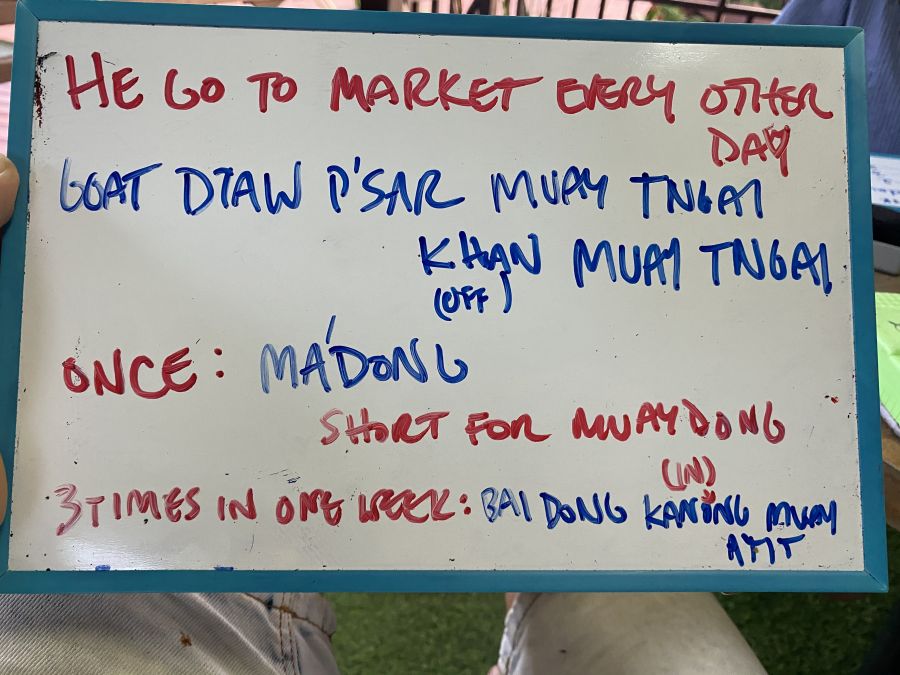 HE GO TO MARKET EVERY OTHER
DAY
GOAT DTAW P'SAR MUAY TNGAI
KHAN MUAY TNGAI
(OFF)
ONCE: MA'DONG
SHORT FOR MUAYDONG
(IN)
3 TIMES IN ONE WEEK: BAI DONG KANONG MUAY
ATIT